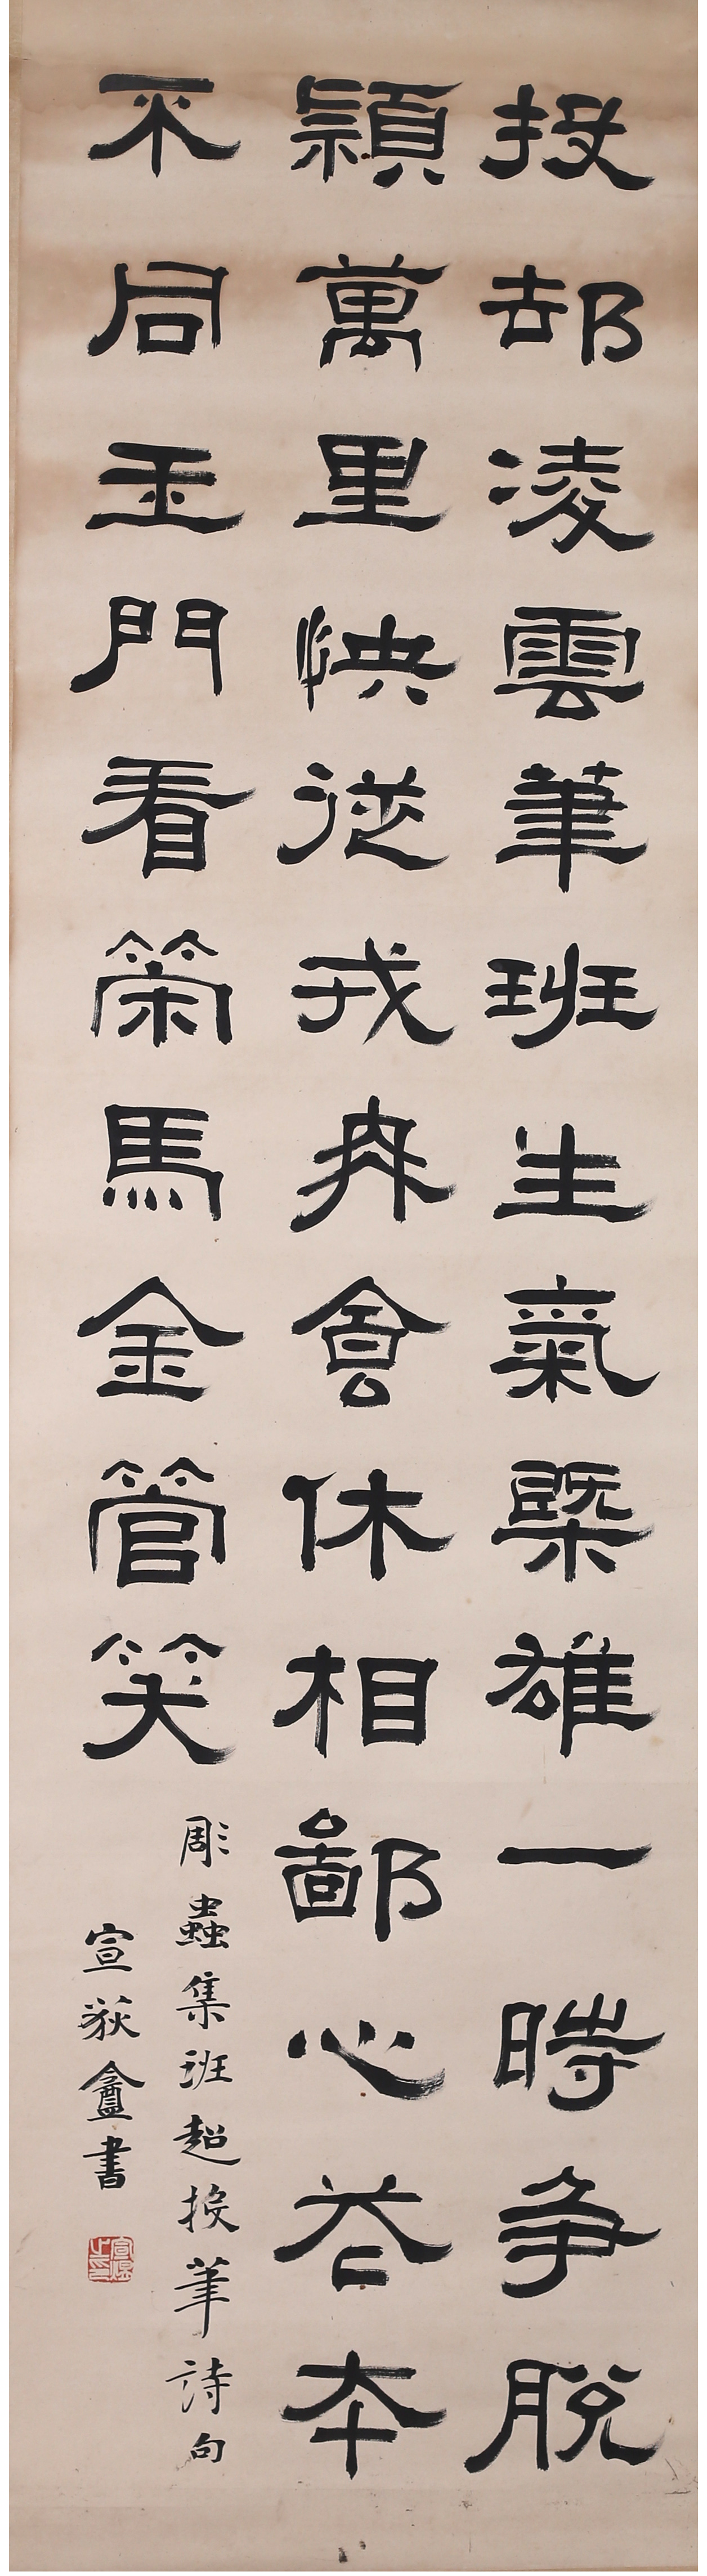 投却凌雲筆班生氣槩雄一時爭脫
穎萬里快從戎食休相鄙心本
不同玉門看策馬金管笑
彫蟲集班超投筆詩句
宣荻盦書